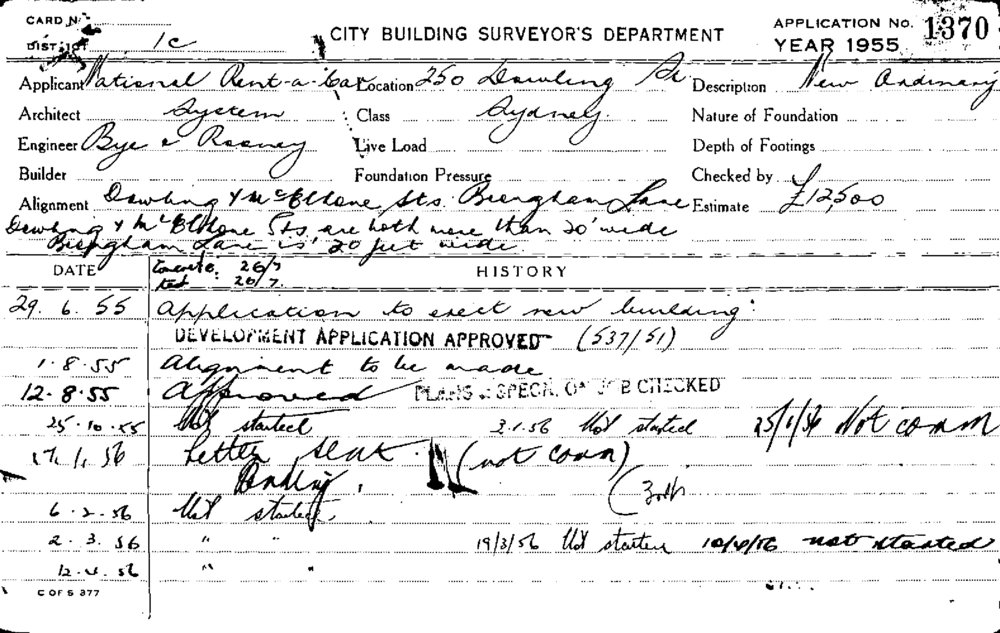 CARD No.
CITY BUILDING SURVEYOR'S DEPARTMENT
APPLICATION No. 1370
DISTRICT 1c
YEAR 1955
Applicant National Rent-a-Car Location 250 Dowling St. Description New Ordinary
Architect System Class Sydney. Nature of Foundation
Engineer Bye & Rooney Live Load Depth of Footings
Builder Foundation Pressure Checked by
Alignment Dowling & McElhone Sts. Lane Estimate £12,500
Dowling & McElhone Sts. are both more than 20' wide
Lane is 20 feet wide.
Concrete. 26/7
26/7.
DATE HISTORY
29. 6. 55 Application to erect new building:
DEVELOPMENT APPLICATION APPROVED (537/51)
1.8.55 Alignment to be made
12.8.55 Approved PLANS & SPECN. ON JOB CHECKED
25.10.55 Not started 3.1.56 Not started 25/1/56 Not comm
17.1.56 Letter sent (not comm)
6.2.56 Not started.
2.3.56 " " 19/3/56 Not started 10/4/56 not started
12.4.56 " "
C OF S 377